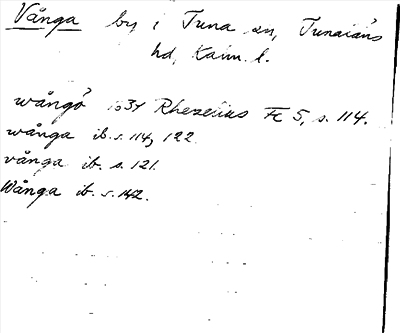 Vånga by i Tuna sn, Tunaläns
hd, Kalm. l.
wångö 1634 Rhezelius Fc 5, s. 114.
wånga ib. s. 114, 122.
vånga ib. s. 121.
Wånga ib. s. 142.